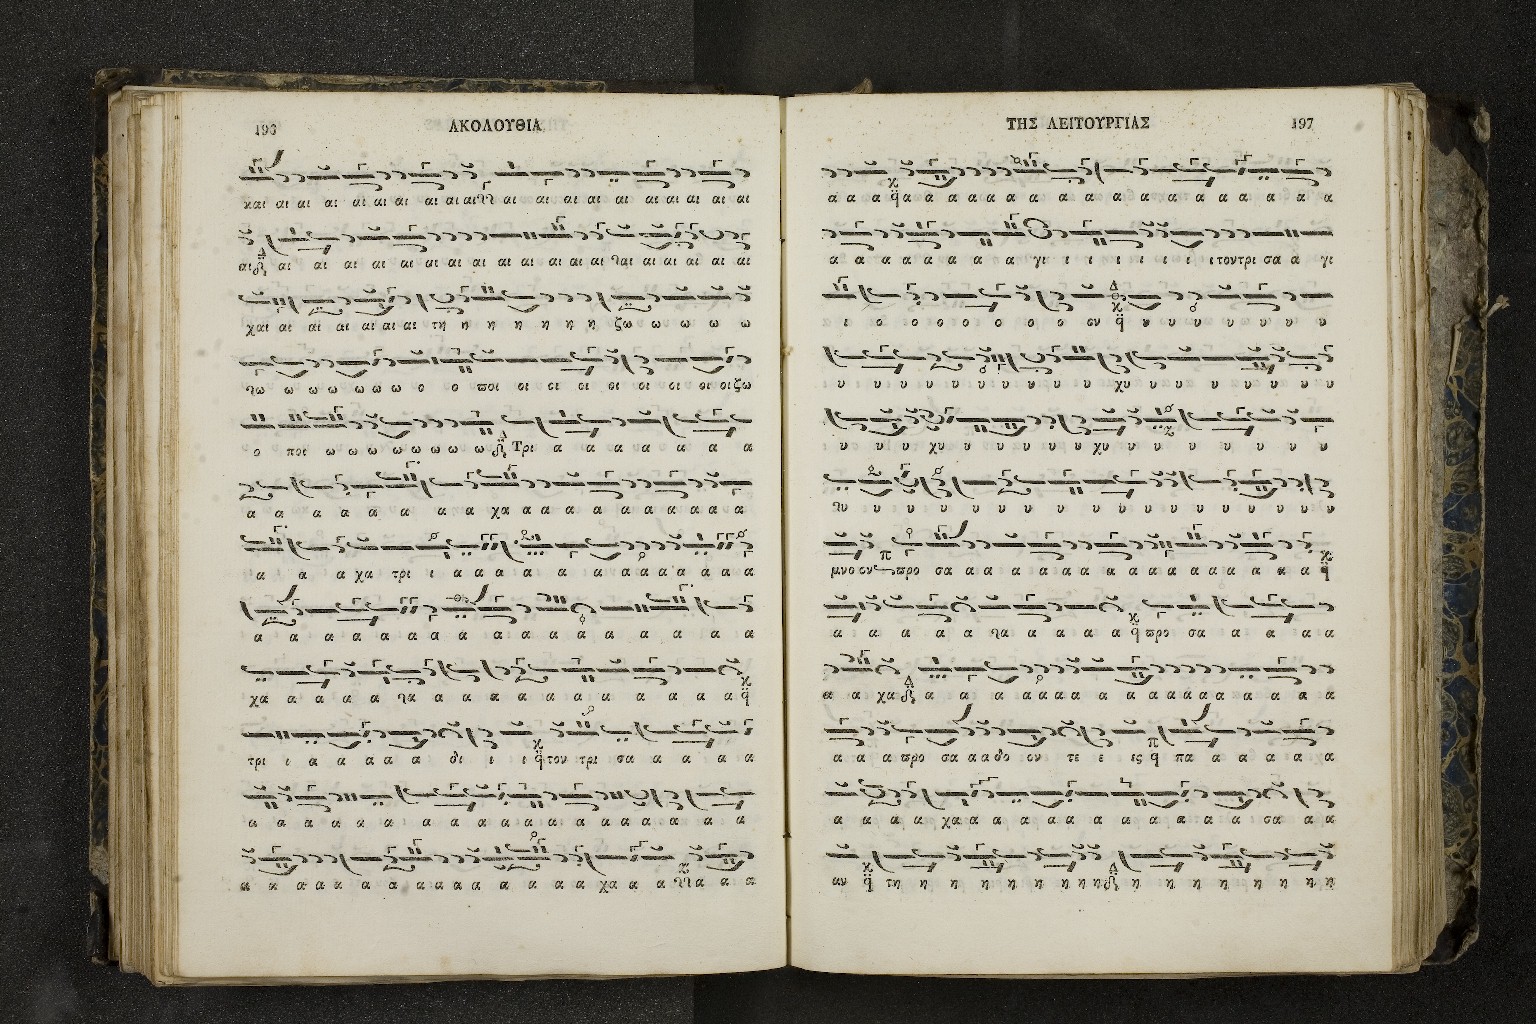 196 ΑΚΟΛΟΥΘΙΑ
και αι αι αι αι αι αι αι αι αι αι αι αι αι αι αι αι αι
αι αι αι αι αι αι αι αι αι αι αι αι αι αι αι αι αι
χαι αι αι αι αι αι αι τη η η η η η η ζω ω ω ω ω
ω ω ω ω ω ω ω ο ο ποι οι οι οι οι οι οι οι οι ζω
ο ποι ω ω ω ω ω ω ω ω Τρι α α α α α α α
α α α α α α α χα α α α α α α α α α
α α α χα τρι ι α α α α α α α α α α α α α
α α α α α α α α α α α α α α α α α
χα α α α α α α α α α α α α α α
τρι ι α α α α α δι ι ι τον τρι σα α α α α
α α α α α α α α α α α α α α α α α α
α α α α α α α α α α α α α α α χα α α α α α
ΤΗΣ ΛΕΙΤΟΥΡΓΙΑΣ 197
α α α α α α α α α α α α α α α α α α α α
α α α α α α α α γι ι ι ι ι ι ι ι τον τρι σα α γι
ι ο ο ο ο ο ο ο ον υ υ υ υ υ υ υ υ
υ υ υ υ υ υ υ υ υ υ χυ υ υ υ υ υ υ υ
υ υ υ χυ υ υ υ υ υ χυ υ υ υ υ υ υ υ
υ υ υ υ υ υ υ υ υ υ υ υ υ υ υ υ υ
μνο ον προ σα α α α α α α α α α α α α α α α α α
α α α α α α α α α α α προ σα α α α α
α α χα α α α α α α α α α α α α α α α α α
α α α προ σα α α δο ον τε ε εις πα α α α α α
α α α α χα α α α α α α α α α α σα α α
αν τη η η η η η η η η η η η η η η η